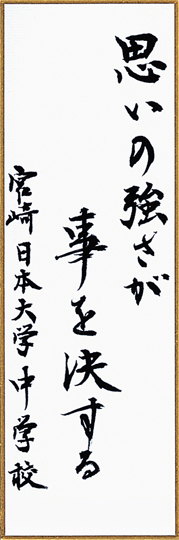 思いの強さが
事を決する
宮崎日本大学中学校